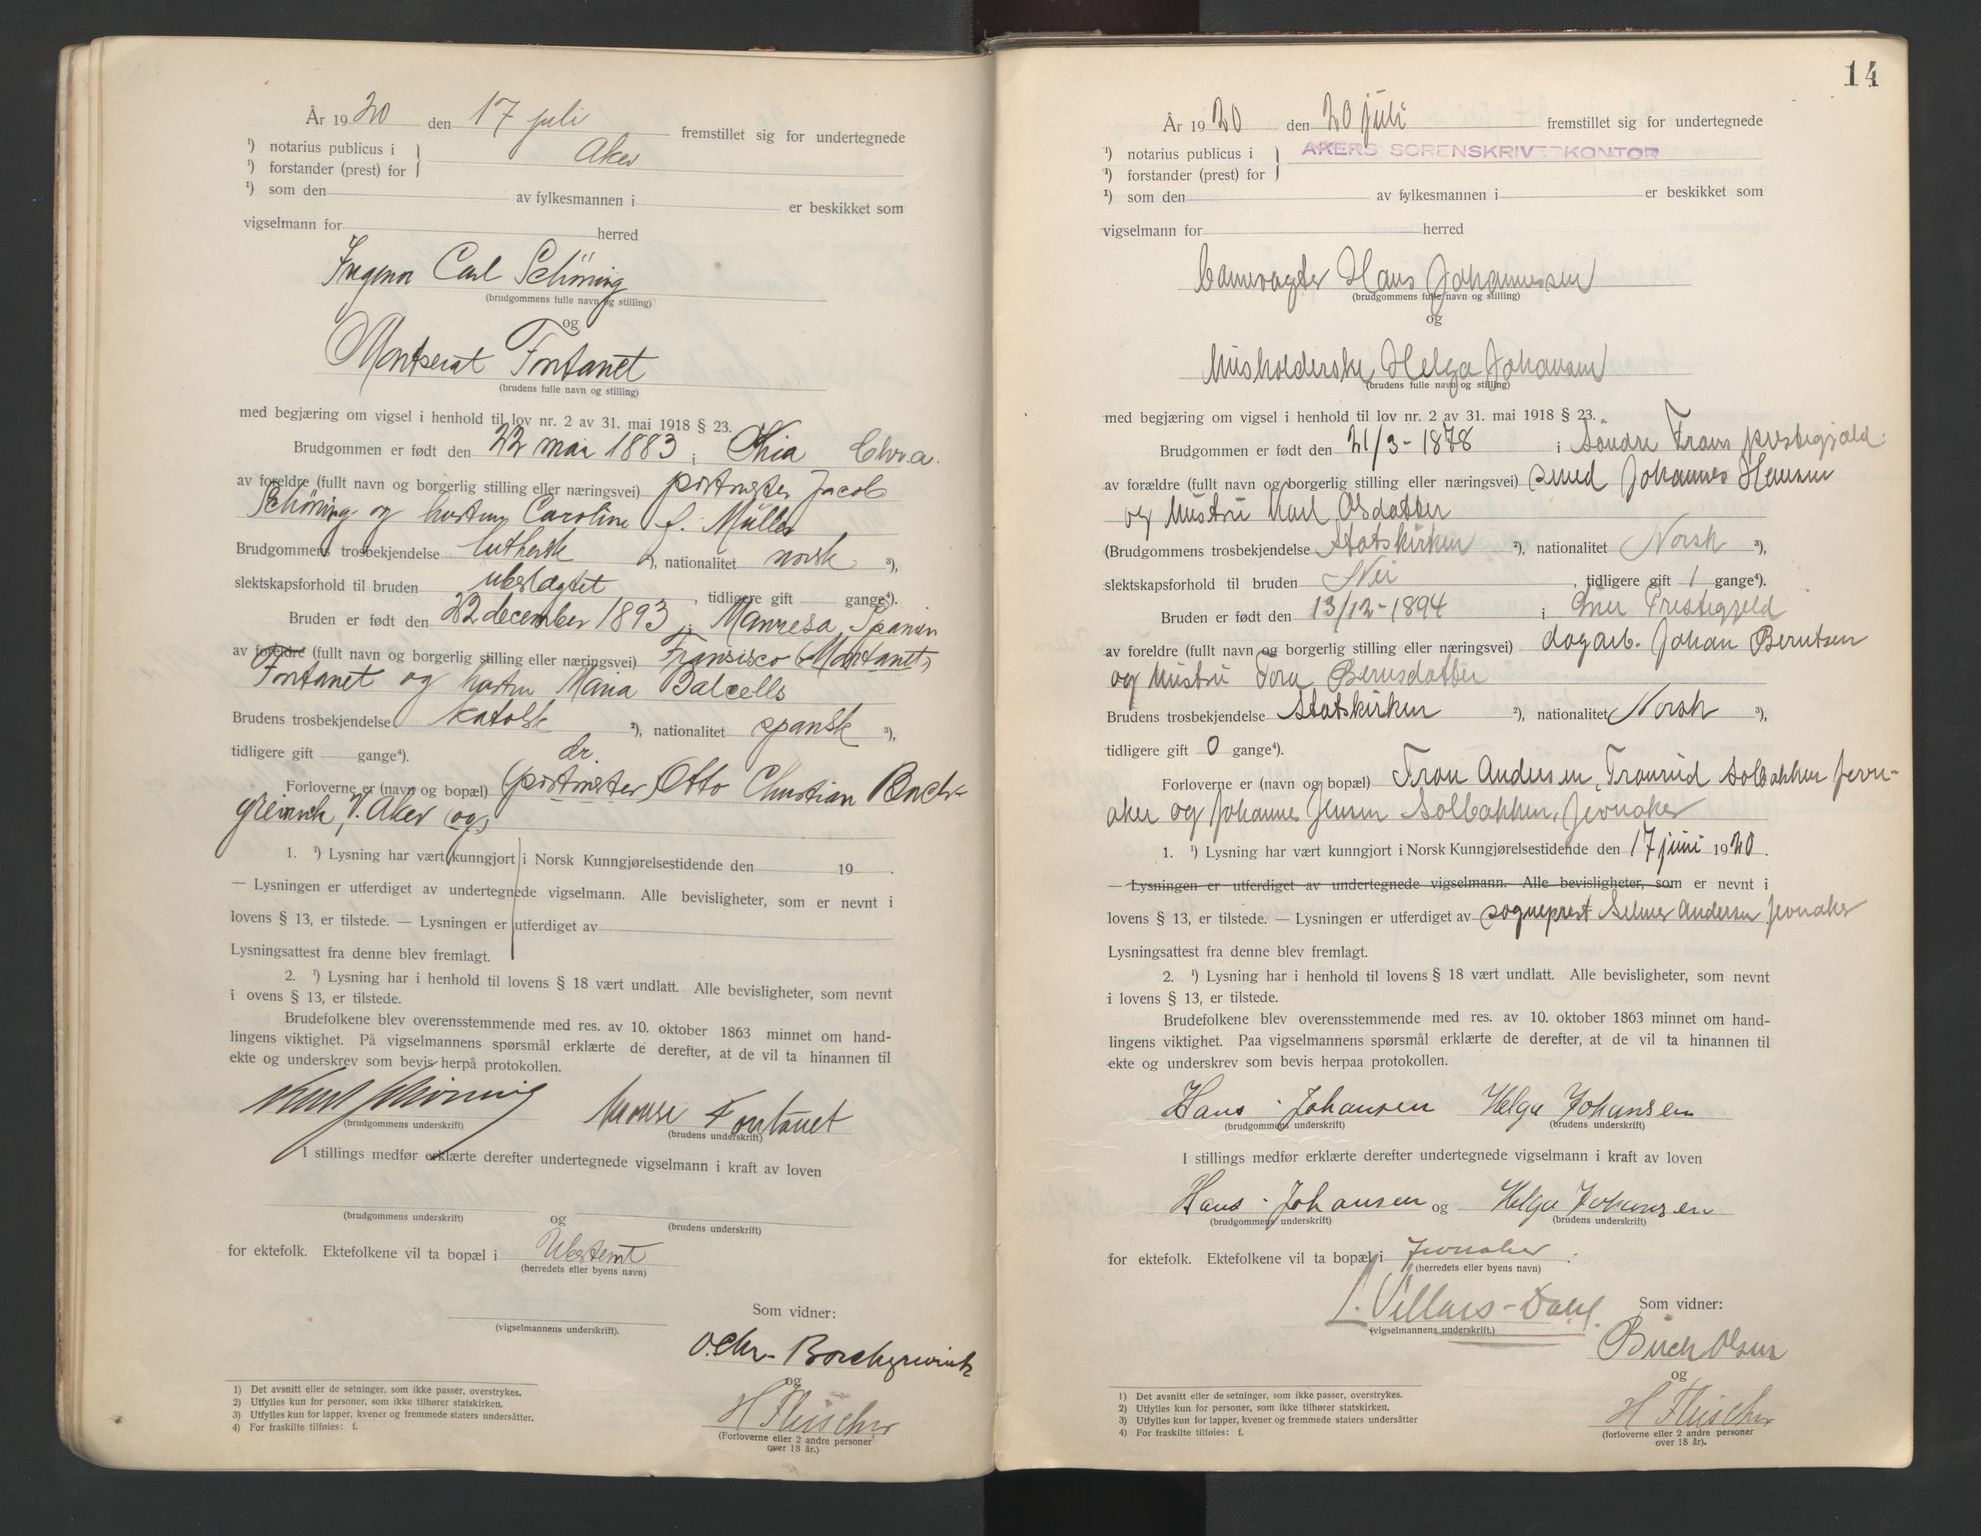 År 1920 den 17 juli fremstillet sig for undertegnede
¹) notarius publicus i Aker
¹) forstander (prest) for
¹) som den av fylkesmannen i er beskikket som
vigselmann for herred
Ingeniør Carl Schöning
(brudgommens fulle navn og stilling)
og
Montserat Fontanet
(brudens fulle navn og stilling)
med begjæring om vigsel i henhold til lov nr. 2 av 31. mai 1918 § 23.
Brudgommen er født den 22 mai 1883 i Kria Chr.a.
av foreldre (fullt navn og borgerlig stilling eller næringsvei) postmester Jacob
Schöning og hustru Caroline f. Müller
Brudgommens trosbekjendelse luthersk ²), nationalitet norsk ³),
slektskapsforhold til bruden ubeslægtet, tidligere gift gange⁴).
Bruden er født den 22 december 1893 i Manresa, Spanien
av foreldre (fullt navn og borgerlig stilling eller næringsvei) Fransisco (Montanet)
Fontanet og hustru Maria Balcells
Brudens trosbekjendelse katolsk ²), nationalitet spansk ³),
tidligere gift gange⁴). dr.
Forloverne er (navn og bopæl) (postmester) Otto Christian Borch-
grevink, V. Aker (og)
1. ¹) Lysning har vært kunngjort i Norsk Kunngjørelsestidende den 19 .
— Lysningen er utferdiget av undertegnede vigselmann. Alle bevisligheter, som er nevnt i
lovens § 13, er tilstede. — Lysningen er utferdiget av
Lysningsattest fra denne blev fremlagt.
2. ¹) Lysning har i henhold til lovens § 18 vært undlatt. Alle bevisligheter, som nevnt
i ovens § 13, er tilstede.
Brudefolkene blev overensstemmende med res. av 10. oktober 1863 minnet om hand-
lingens viktighet. På vigselmannens spørsmål erklærte de derefter, at de vil ta hinannen til
ekte og underskrev som bevis herpå protokollen.
Karl Schöning Monse Fontanet
(brudgommens underskrift) (brudens underskrift)
I stillings medfør erklærte derefter undertegnede vigselmann i kraft av loven
og
(brudgommens underskrift) (brudens underskrift)
for ektefolk. Ektefolkene vil ta bopæl i Ubestemt
(herredets eller byens navn)
Som vidner:
(vigselmannens underskrift).
O. Chr. Borchgrevink
og
H Fleischer
(Forloverne eller 2 andre personer
over 18 år.)
1) Det avsnitt eller de setninger, som ikke passer, overstrykes.
2) Utfylles kun for personer, som ikke tilhører statskirken.
3) Utfylles kun for lapper, kvener og fremmede staters undersåtter.
4) For fraskilte tilføies: f.
14
År 1920 den 20 juli fremstillet sig for undertegnede
¹) notarius publicus i AKERS SORENSKRIVERKONTOR
¹) forstander (prest) for
¹) som den av fylkesmannen i er beskikket som
vigselmann for herred
Banevogter Hans Johannessen
(brudgommens fulle navn og stilling)
og
Husholderske Helga Johansen
(brudens fulle navn og stilling)
med begjæring om vigsel i henhold til lov nr. 2 av 31. mai 1918 § 23.
Brudgommen er født den 21/3-1878 i Søndre Frons prestegjeld.
av foreldre (fullt navn og borgerlig stilling eller næringsvei) smed Johannes Hansen
og hustru Kari Olsdatter
(Brudgommens trosbekjendelse Statskirken ²), nationalitet Norsk ³),
slektskapsforhold til bruden Nei, tidligere gift 1 gange⁴).
Bruden er født den 13/12-1894 i Gner Prestegjeld
av foreldre (fullt navn og borgerlig stilling eller næringsvei) dagarb. Johan Berntsen
og hustru Tora Berusdatter
Brudens trosbekjendelse Statskirken ²), nationalitet Norsk ³),
tidligere gift 0 gange⁴).
Forloverne er (navn og bopæl) Tron Andersen, Tronrud Solbakken Jevn-
aker og Johannes Jensen Solbakken, Jevnaker
1. ¹) Lysning har vært kunngjort i Norsk Kunngjørelsestidende den 17 juni 1920.
— Lysningen er utferdiget av undertegnede vigselmann. Alle bevisligheter, som er nevnt i
lovens § 13, er tilstede. — Lysningen er utferdiget av sogneprest Selmer Andersen Jevnaker
Lysningsattest fra denne blev fremlagt.
2. ¹) Lysning har i henhold til lovens § 18 vært undlatt. Alle bevisligheter, som nevnt
i lovens § 13, er tilstede.
Brudefolkene blev overensstemmende med res. av 10. oktober 1863 minnet om hand-
lingens viktighet. Paa vigselmannens spørsmål erklærte de derefter, at de vil ta hinannen til
ekte og underskrev som bevis herpaa protokollen.
Hans Johansen Helga Johansen
(brudgommens underskrift) (brudens underskrift)
I stillings medfør erklærte derefter undertegnede vigselmann i kraft av loven
Hans Johansen og Helga Johansen
(brudgommens underskrift) (brudens underskrift)
for ektefolk. Ektefolkene vil ta bopæl i Jevnaker.
(herredets eller byens navn)
L. Villars-Dahl. Som vidner:
(vigselmannens underskrift.)
Birch Olsen
og
H Fleischer
(forloverne eller 2 andre personer
over 18 år).
1) Det avsnitt eller de setninger, som ikke passer, overstrykes.
2) Utfylles kun for personer, som ikke tilhører statskirken.
3) Utfylles kun for lapper, kvener og fremmede staters undersåtter
4) For fraskilte tilføies: f.